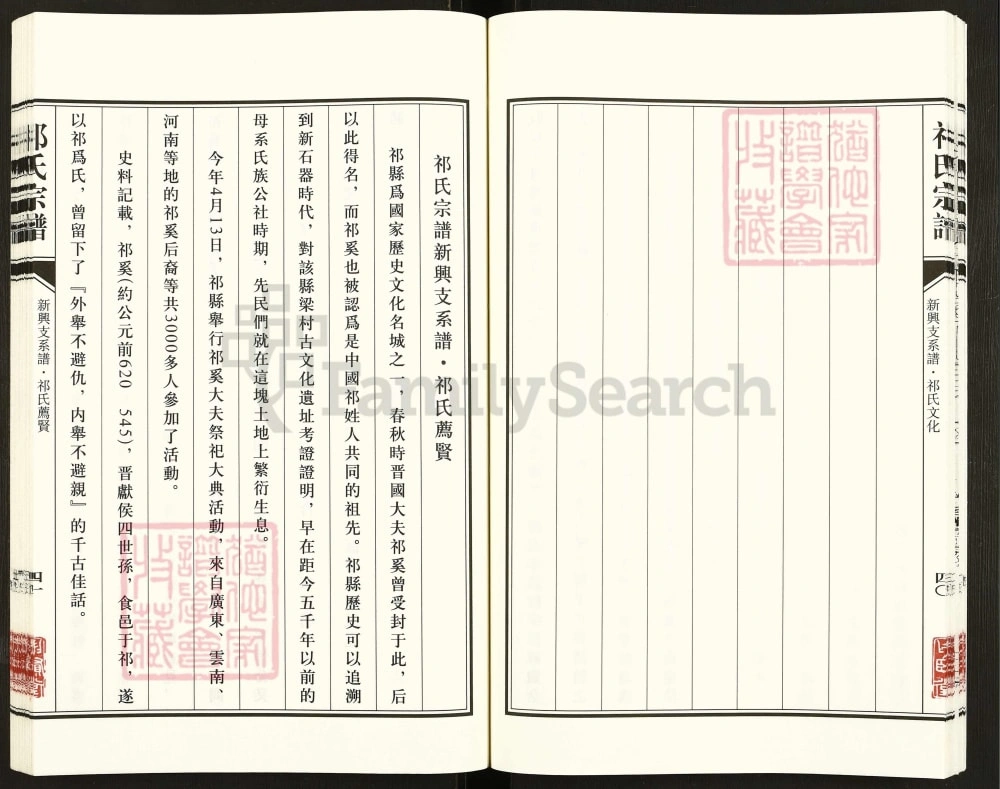 祁氏宗譜
新興支系譜·祁氏文化
四〇
猶他家
譜學會
收藏
祁氏宗譜新興支系譜·祁氏薦賢
祁縣爲國家歷史文化名城之一，春秋時晋國大夫祁奚曾受封于此，后
以此得名，而祁奚也被認爲是中國祁姓人共同的祖先。祁縣歷史可以追溯
到新石器時代，對該縣梁村古文化遺址考證證明，早在距今五千年以前的
母系氏族公社時期，先民們就在這塊土地上繁衍生息。
今年4月13日，祁縣舉行祁奚大夫祭祀大典活動，來自廣東、雲南、
河南等地的祁奚后裔等共3000多人參加了活動。
史料記載，祁奚(約公元前620 545)，晋獻侯四世孫，食邑于祁，遂
以祁爲氏，曾留下了『外舉不避仇，内舉不避親』的千古佳話。
猶他家
譜學會
收藏
祁氏宗譜
新興支系譜·祁氏薦賢
四一
FamilySearch